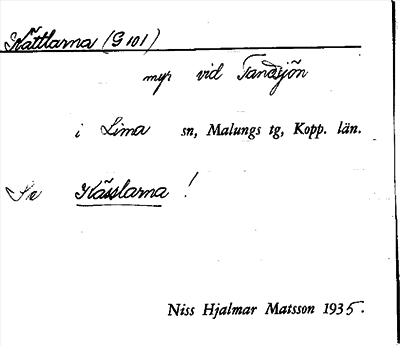 Kättlarna (G 101)
myr vid Tandsjön
i Lima sn, Malungs tg, Kopp. län.
Se Kässlarna !
Niss Hjalmar Matsson 1935.